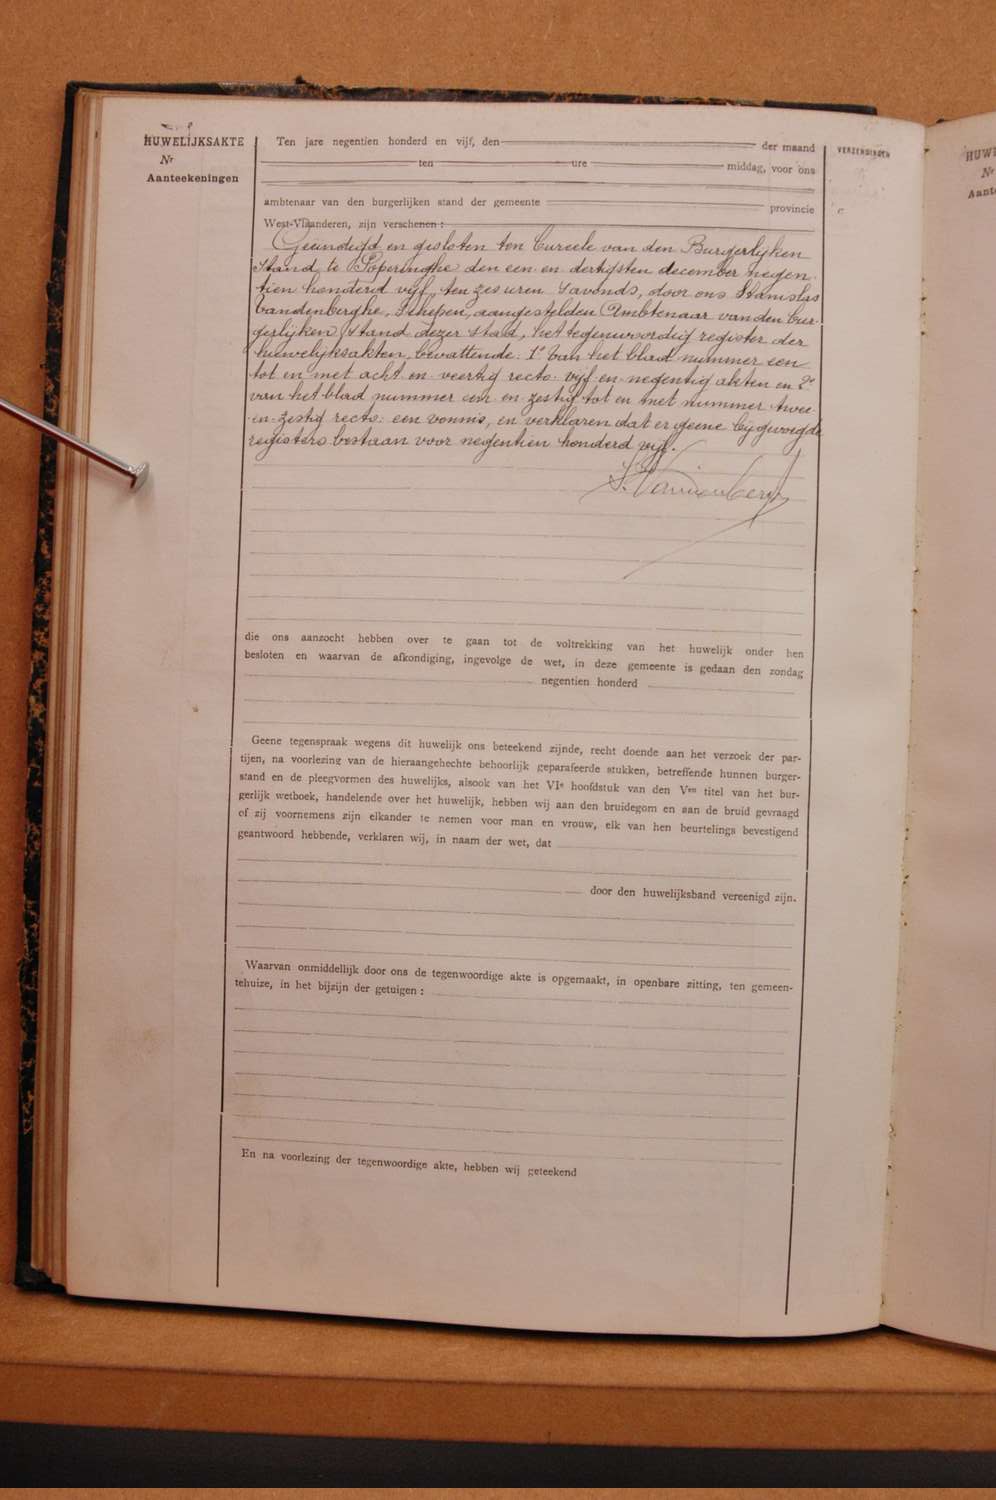 HUWELIJKSAKTE
Nr
Aanteekeningen
Ten jare negentien honderd en vijf, den der maand
ten ure middag, voor ons
ambtenaar van den burgerlijken stand der gemeente provincie
West-Vlaanderen, zijn verschenen :
Geëindigd en gesloten ten bureele van den Burgerlijken
stand te Poperinghe den een en dertigsten december negen-
tien honderd vijf, ten zes uren savonds, door ons Stanislas
Vandenberghe, Schepen, aangestelden Ambtenaar van den bur-
gerlijken stand dezer stad, het tegenwoordig register der
huwelijksakten, bevattende: 1° van het blad nummer een
tot en met acht en veertig recto: vijf en negentig akten en 2°
van het blad nummer een en zestig tot en met nummer twee
en zestig recto: een vonnis, en verklaren dat er geene bijgevoegde
registers bestaan voor negentien honderd vijf.
S. Vandenberghe
die ons aanzocht hebben over te gaan tot de voltrekking van het huwelijk onder hen
besloten en waarvan de afkondiging, ingevolge de wet, in deze gemeente is gedaan den zondag
negentien honderd
Geene tegenspraak wegens dit huwelijk ons beteekend zijnde, recht doende aan het verzoek der par-
tijen, na voorlezing van de hieraangehechte behoorlijk geparafeerde stukken, betreffende hunnen burger-
stand en de pleegvormen des huwelijks, alsook van het VIe hoofdstuk van den Ven titel van het bur-
gerlijk wetboek, handelende over het huwelijk, hebben wij aan den bruidegom en aan de bruid gevraagd
of zij voornemens zijn elkander te nemen voor man en vrouw, elk van hen beurtelings bevestigend
geantwoord hebbende, verklaren wij, in naam der wet, dat
door den huwelijksband vereenigd zijn.
Waarvan onmiddellijk door ons de tegenwoordige akte is opgemaakt, in openbare zitting, ten gemeen-
tehuize, in het bijzijn der getuigen :
En na voorlezing der tegenwoordige akte, hebben wij geteekend
VERZENDINGEN
HUWE
Nr
Aante